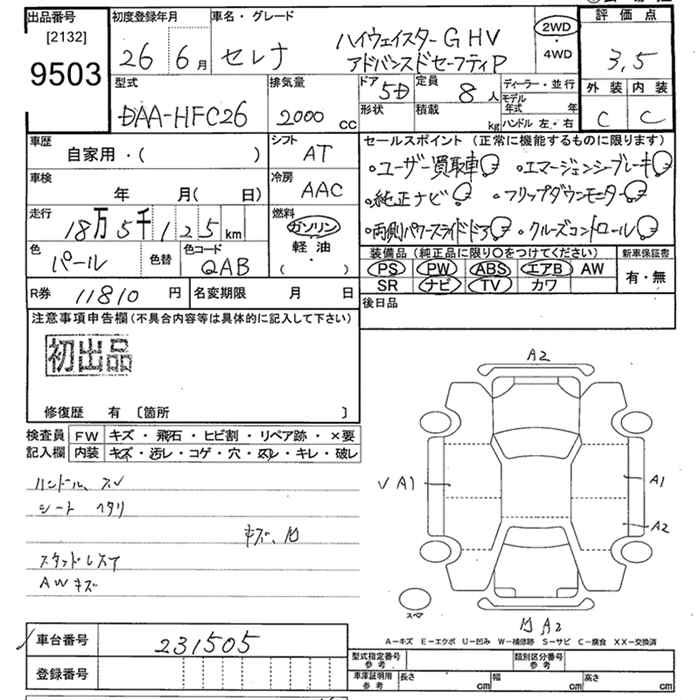 出品番号
[2132]
9503
初度登録年月
26 6月
車名・グレード
セレナ
ハイウェイスター G HV
アドバンスドセーフティP
2WD
・
4WD
評価点
3.5
外装 内装
C C
型式
DAA-HFC26
排気量
2000 CC
ドア
5D
形状
定員
8人
積載
kg
ディーラー・並行
モデル年式 年
ハンドル 左・右
車歴
自家用・( )
シフト
AT
車検
年 月( 日)
冷房
AAC
走行
18万5千125km
燃料
ガソリン
軽油
( ・ )
色
パール
色替
色コード
QAB
R券 11810 円
名変期限 月 日
セールスポイント (正常に機能するものに限ります)
・ユーザー買取車 ・エマージェンシーブレーキ
・純正ナビ ・フリップダウンモニター
・両側パワースライドドア ・クルーズコントロール
装備品 (純正品に限り〇をつけてください)
PS PW ABS エアB AW
SR ナビ TV カワ
新車保証書
有・無
後日品
注意事項申告欄 (不具合内容等は具体的に記入して下さい)
初出品
修復歴 有 〔箇所 〕
検査員記入欄
FW キズ・飛石・ヒビ割・リペア跡・×要
内装 キズ・汚レ・コゲ・穴・スレ・キレ・破レ
ハンドル、スレ
シート ヘタリ
キズ、凹
スタッドレスT
AWキズ
A2
A1
A1
A2
A2
スペア
A－キズ E－エクボ U－凹み W－補修跡 S－サビ C－腐食 XX－交換済
車台番号 231505
登録番号
型式指定番号 参考
類別区分番号 参考
車庫証明用 参考
長さ cm 幅 cm 高さ cm